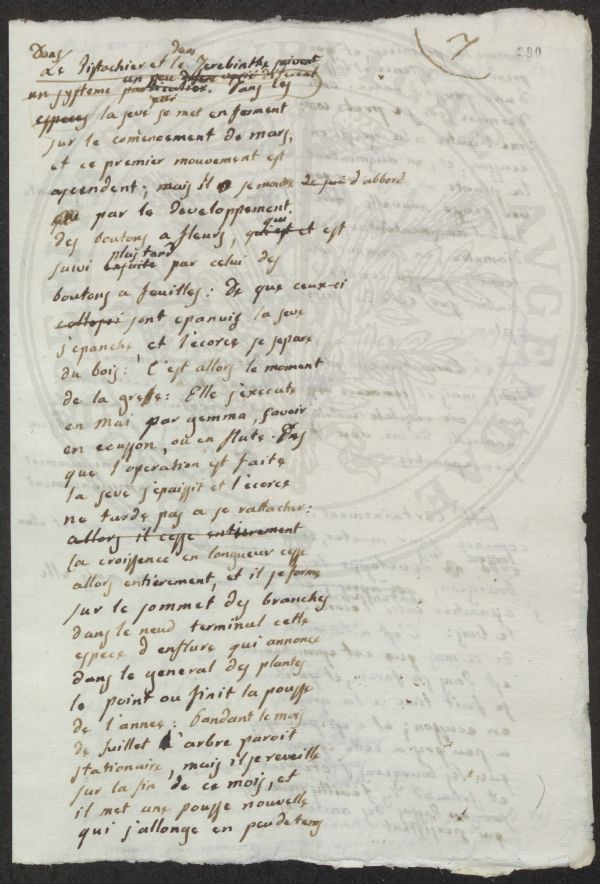 7
230
Dans dans
Le Pistachier et le Terebinthe suivent
un peu different
un systeme particulier. Dans les
especes la seve se met en ferment
sur le comencement de mars,
et ce premier mouvement est
ascendent; mais il se montre de sui d'abbord
par le developpement
des boutons a fleurs, qui est et est
qui
plus tard
suivi ensuite par celui des
boutons a feuilles: De que ceux-ci
sont epanuis la seve
s'epanche et l'ecorce se separe
du bois: C'est allors le moment
de la greffe: Elle s'execute
en mai par gemma, savoir
en ecusson, ou en flute. Des
que l'operation est faite
la seve s'epaissit et l'ecorce
ne tarde pas a se rattacher:
allors il cesse entierement
la croissence en longueur cesse
allors entierement, et il se forme
sur le sommet des branches
dans le neud terminal cette
espece d'enflure qui annonce
dans le general des plantes
le point ou finit la pousse
de l'annee: Pandant le mois
de Juillet l'arbre paroit
stationaire, mais il se reveille
sur la fin de ce mois, et
il met une pousse nouvelle
qui s'allonge en peu de tems